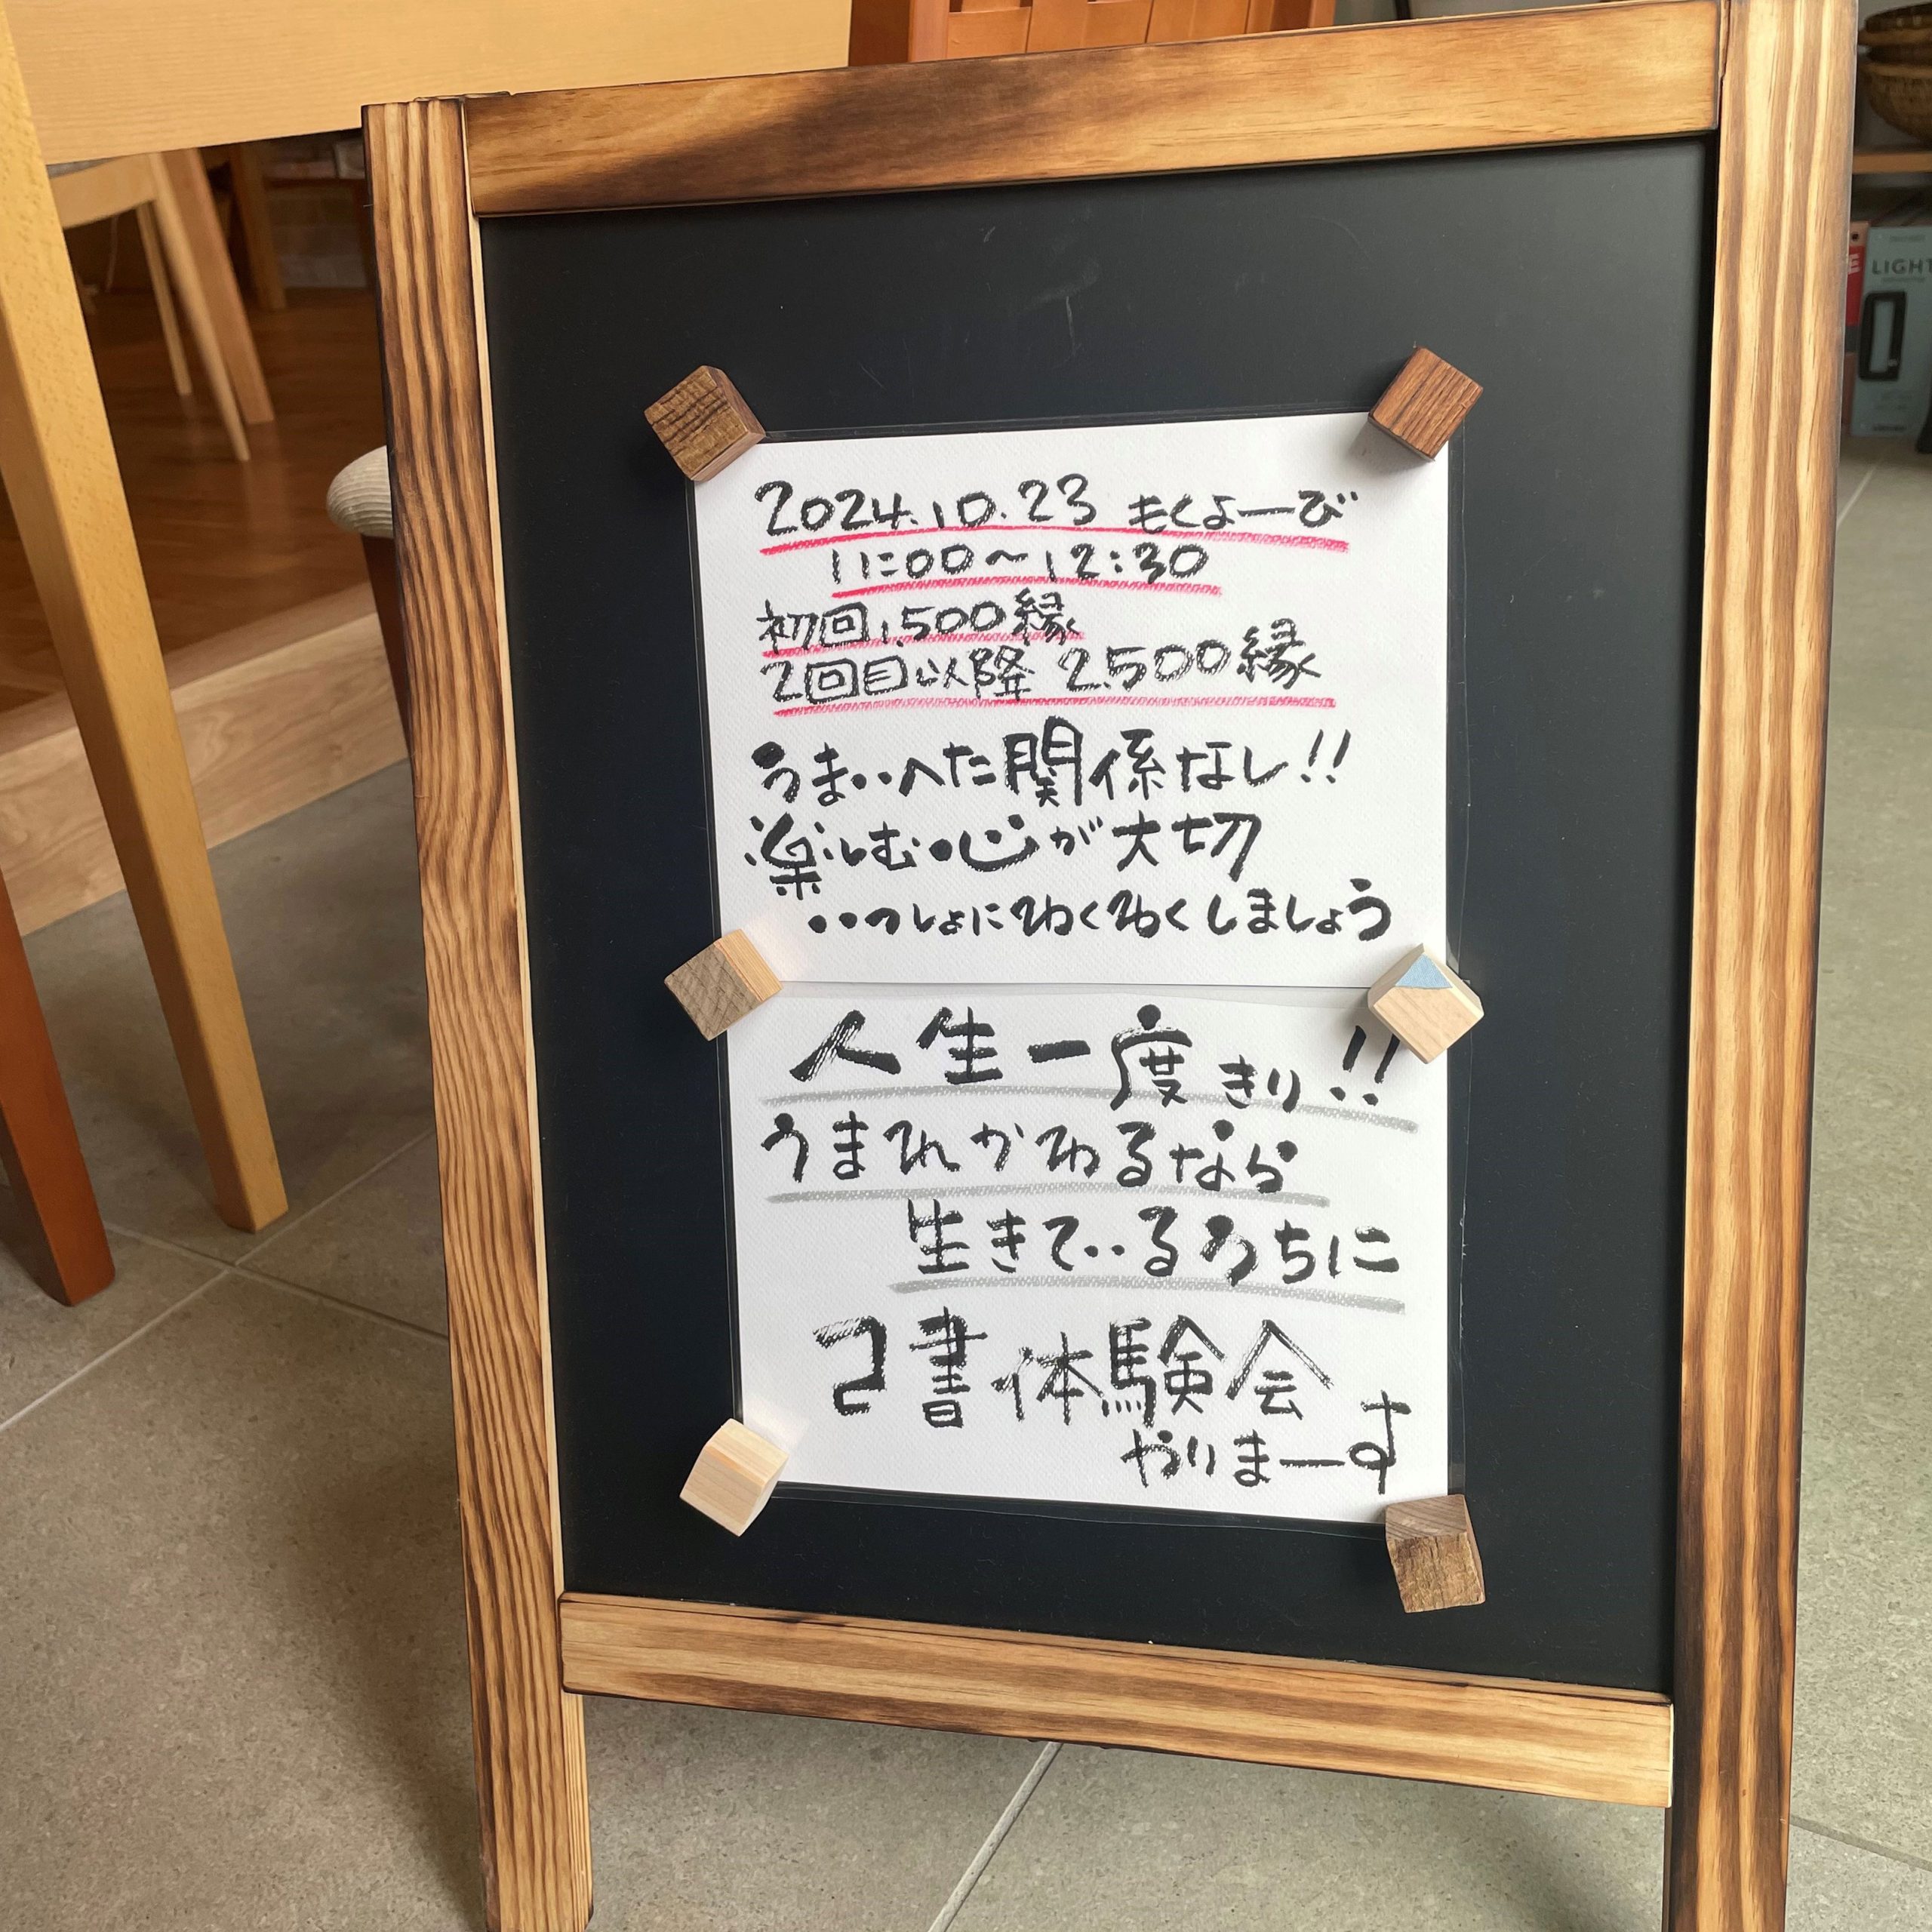 2024.10.23 もくよーび
11:00〜12:30
初回1,500縁
2回目以降 2,500縁
うまいへた関係なし!!
楽しむ心が大切
いっしょにわくわくしましょう
人生一度きり!!
うまれかわるなら
生きているうちに
己書体験会
やりまーす
LIGHT